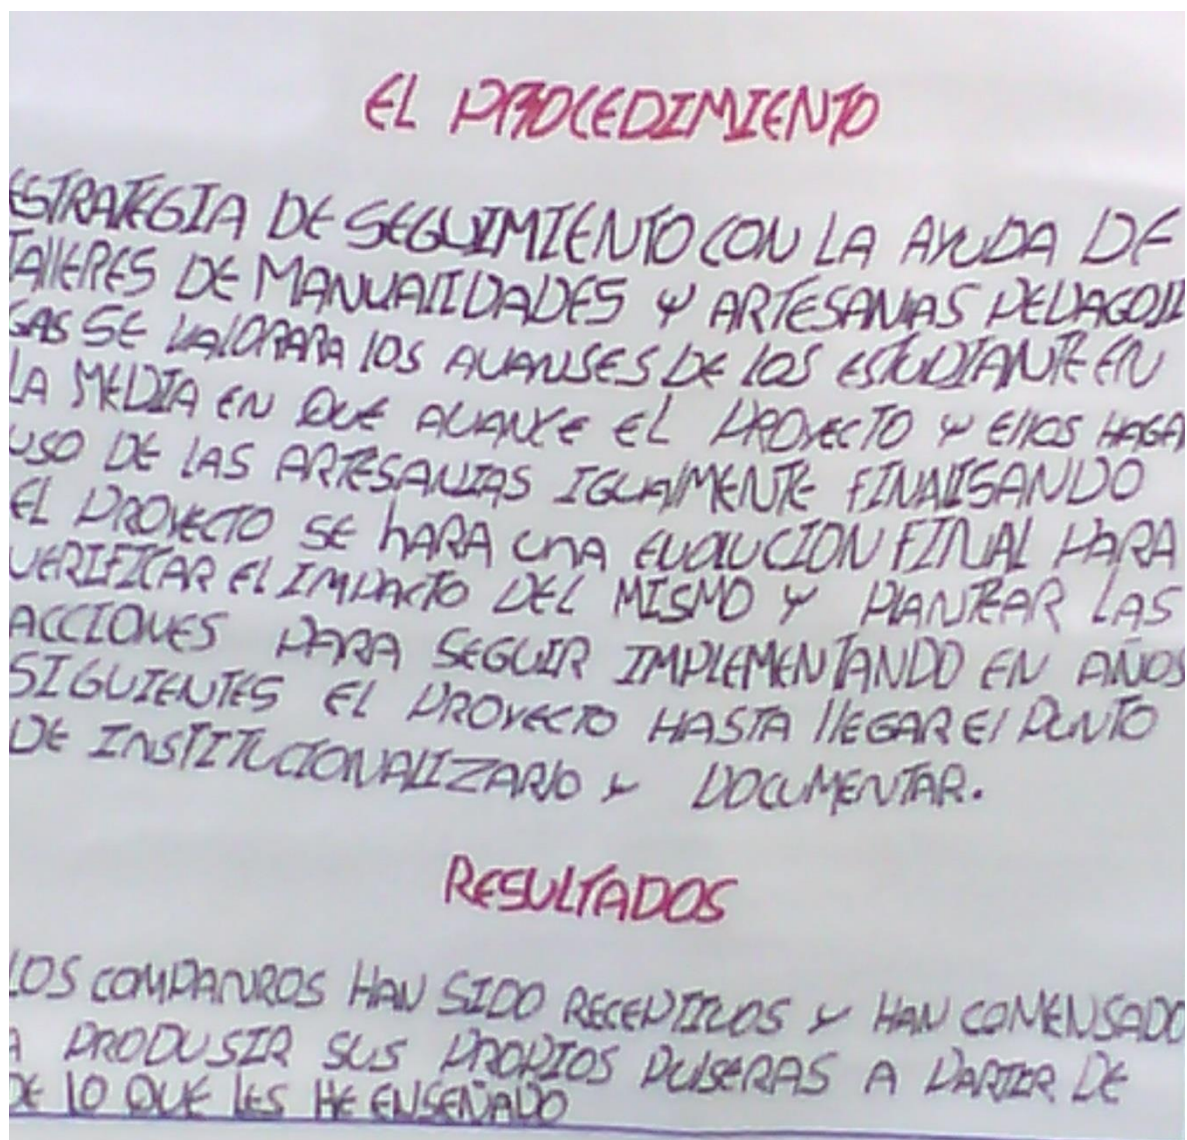 EL PROCEDIMIENTO
ESTRATEGIA DE SEGUIMIENTO CON LA AYUDA DE
TALLERES DE MANUALIDADES Y ARTESANIAS PEDAGOJI
GAS SE VALORARA LOS AVANSES DE LOS ESTUDIANTE EN
LA MEDIA EN QUE AVANCE EL PROYECTO Y ELLOS HAGA
USO DE LAS ARTESANIAS IGUALMENTE FINALISANDO
EL PROYECTO SE HARA UNA EVOLUCION FINAL PARA
VERIFICAR EL IMPACTO DEL MISMO Y PLANTEAR LAS
ACCIONES PARA SEGUIR IMPLEMENTANDO EN AÑOS
SIGUIENTES EL PROYECTO HASTA LLEGAR EL PUNTO
DE INSTITUCIONALIZARLO Y DOCUMENTAR.
RESULTADOS
LOS COMPANROS HAN SIDO RECEPTIVOS Y HAN COMENSADO
A PRODUSIR SUS PROPIOS PULSERAS A PARTIR DE
DE LO QUE LES HE ENSEÑADO